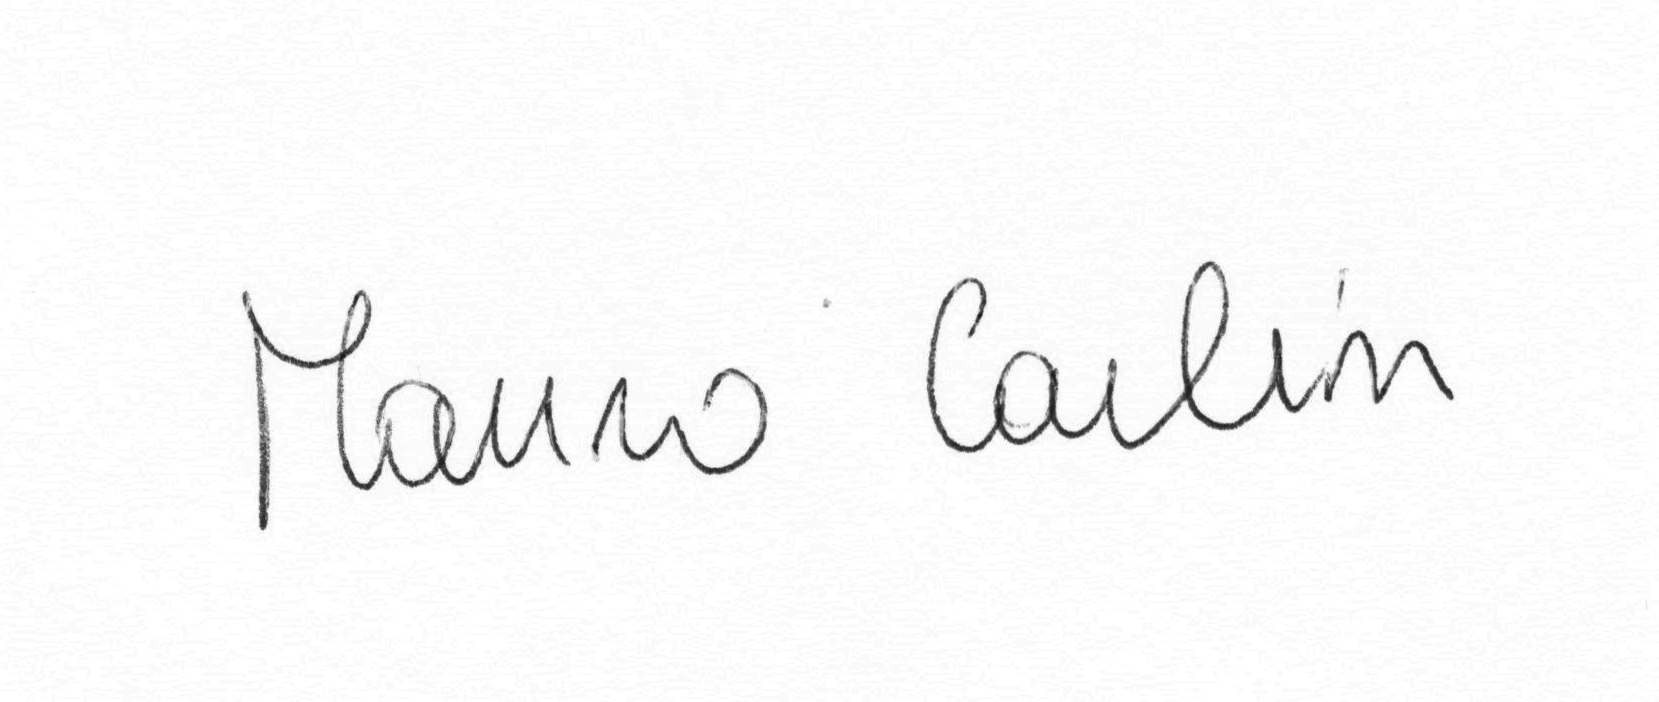 Mauro Carlin